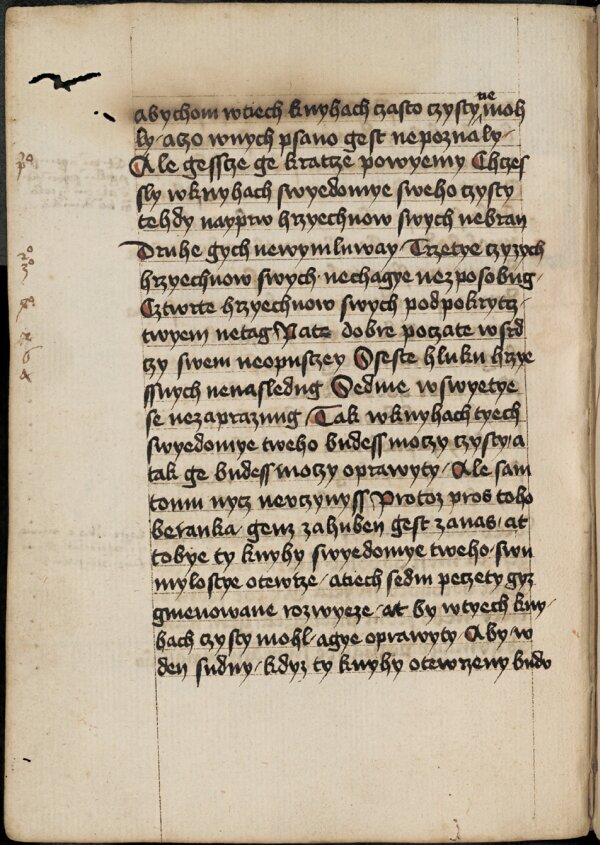 abychom wtiech knyhach czasto czysty nemoh
ly· aczo wnych psano gest nepoznaly·
Ale gesscze ge kratze powyemy Chczes
sly wknyhach swyedomye sweho czysty
tehdy nayprw hrzyechuow swych nebran
Druhe gych newymluway· Trzetye czyzych
hrzyechuow swych· nechagye nezposobug·
Cztwrte hrzyechuow swych podpokrytz·
twyem netag Pate dobre poczate wsrd
czy swem neopusczey Sseste hluku hrzye
ssnych nenasledug Sedme wswyetye
se nezaprazung· Tak wknyhach tyech
swyedomye tweho budess moczy czysty· a
tak ge budess moczy oprawyty· Ale sam
tomu nycz nevczynyss Protoz pros toho
beranka· genz zahuben gest zanas· at
tobye ty knyhy swyedomye tweho· swu
mylostye otewrze· atiech sedm peczety gyz
gmenowane rozwyeze· at by wtyech kny·
hach czysty mohl· agye oprawyty· Aby w
den sudny· kdyz ty knyhy otewrzeny budu